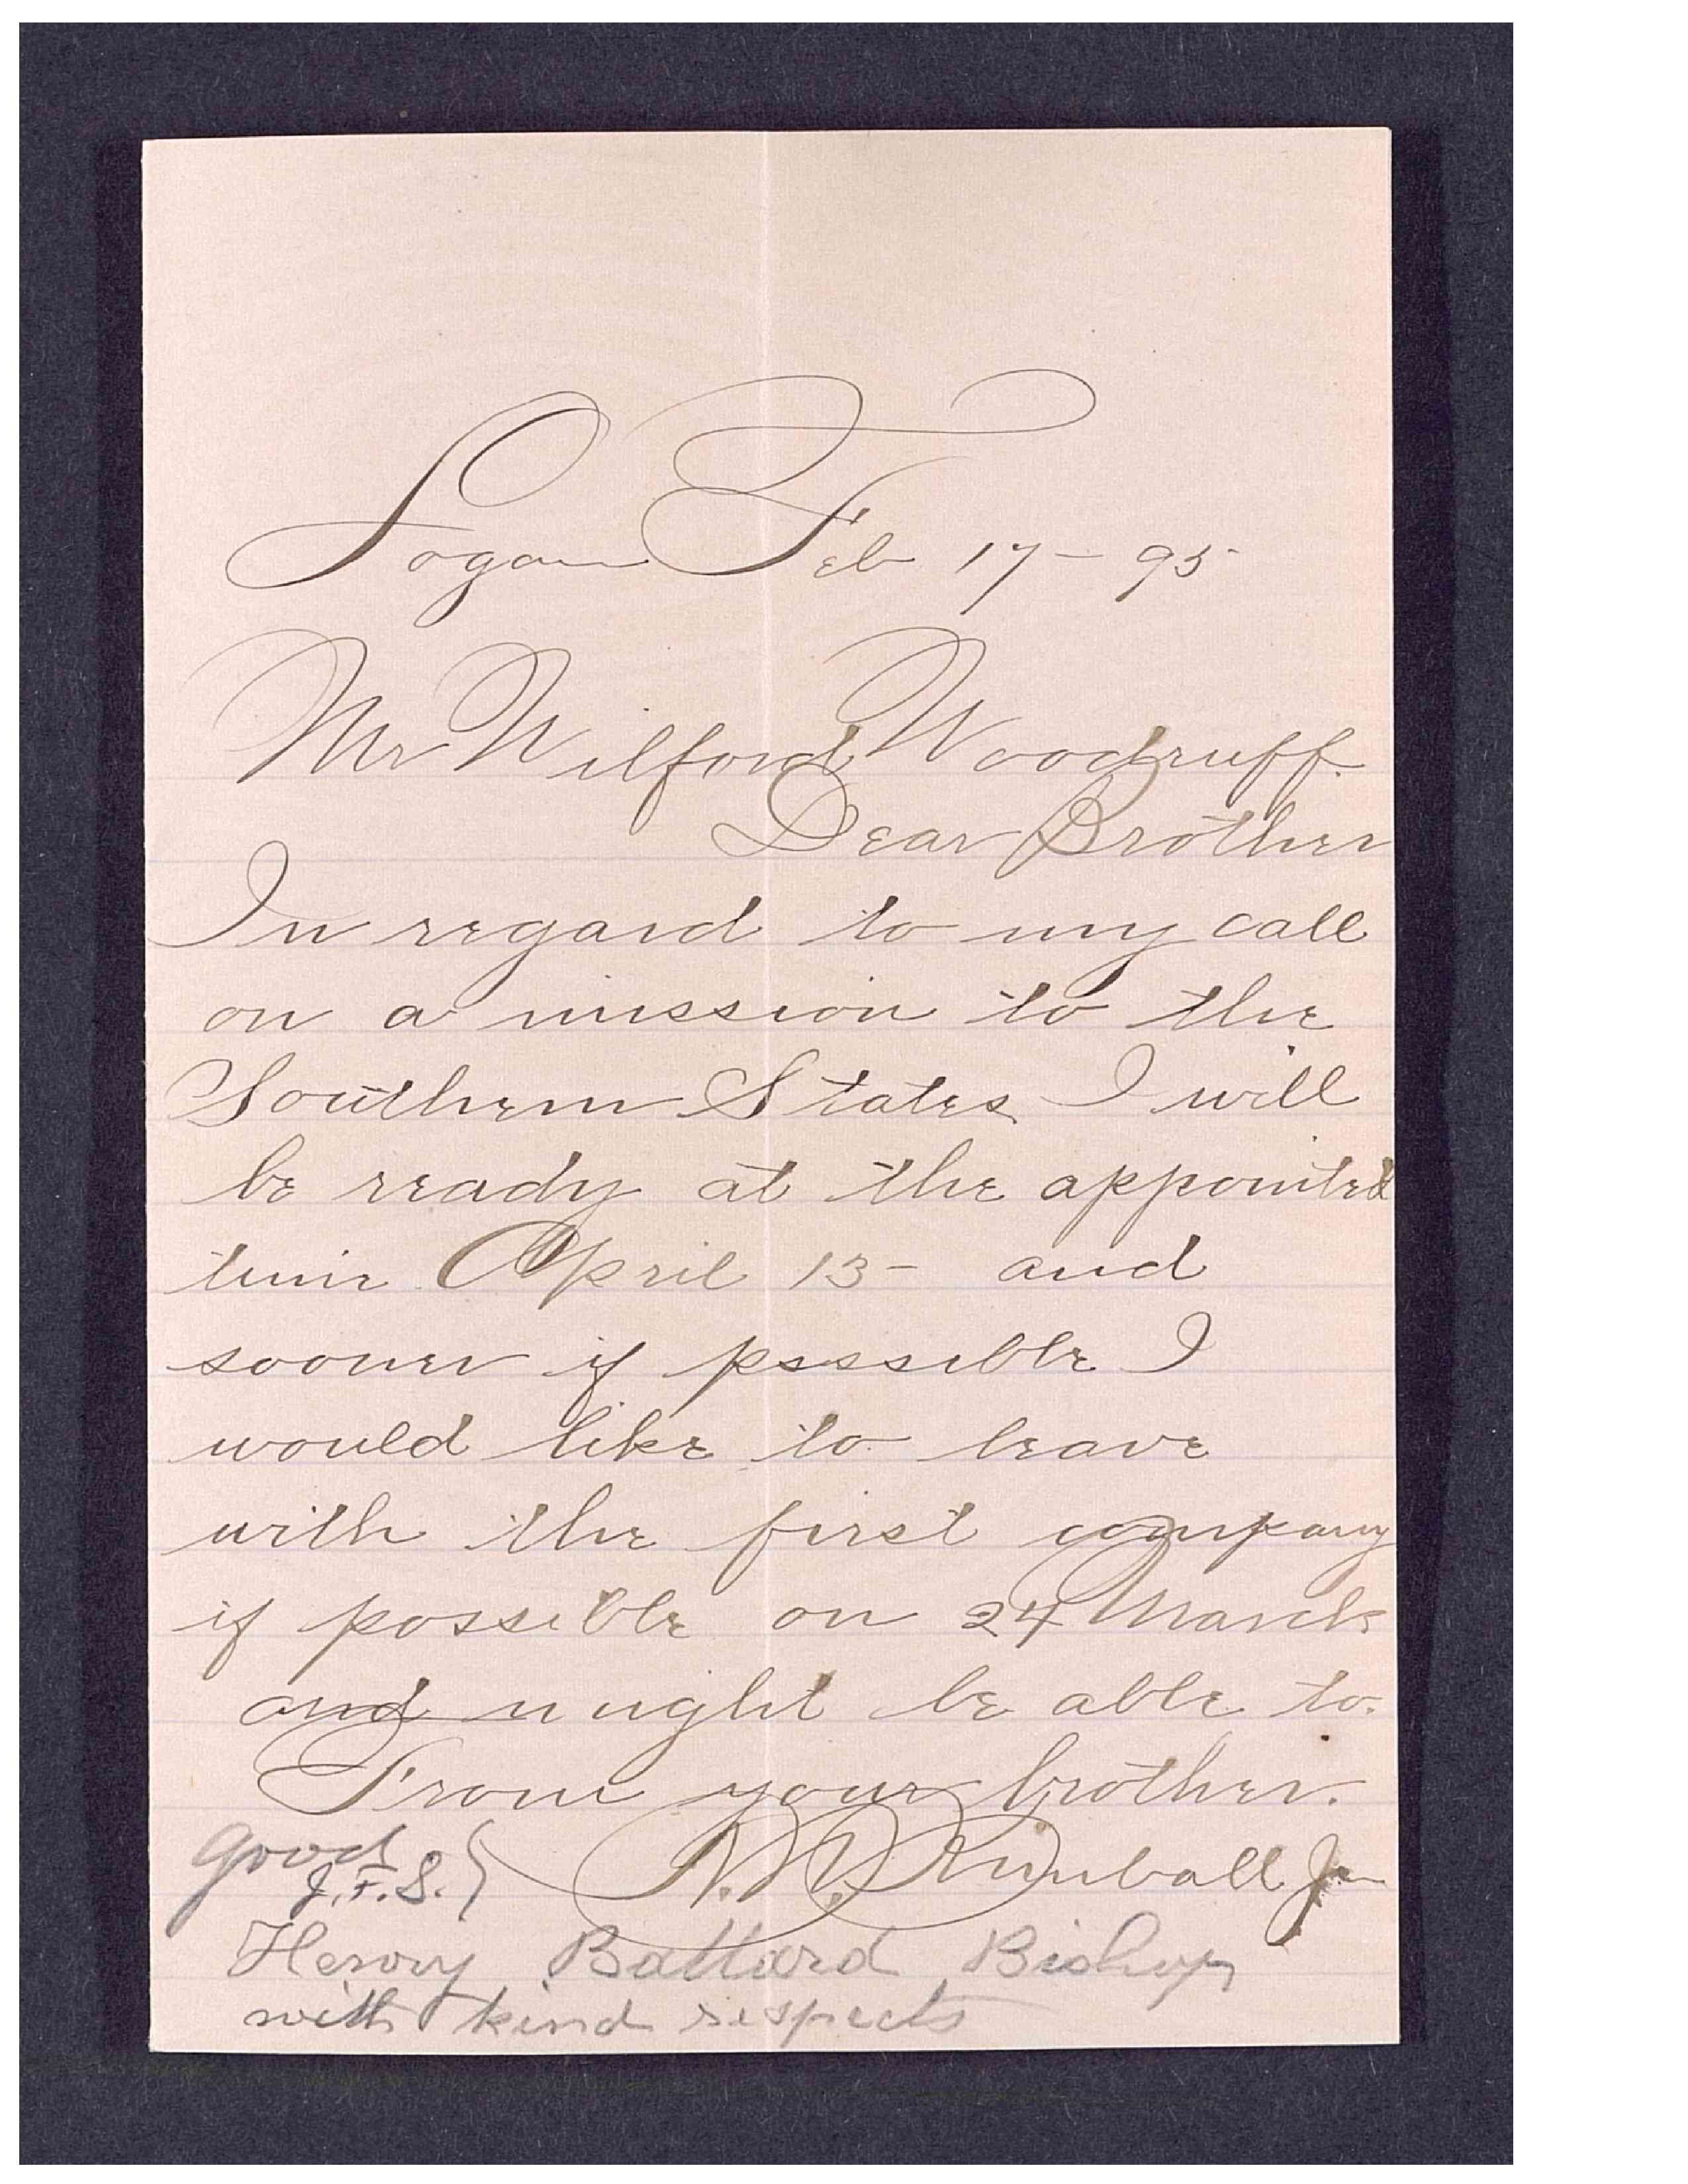 Logan Feb 17 - 95
Mr Wilford Woodruff.
Dear Brother
In regard to my call
on a mission to the
Southern States I will
be ready at the appointed
time April 13 - and
sooner if possible I
would like to leave
with the first company
if possible on 24 March
and might be able to.
From your brother.
Good
J. F. S. } Kimball Jr
Henry Ballard Bishop
with kind respects